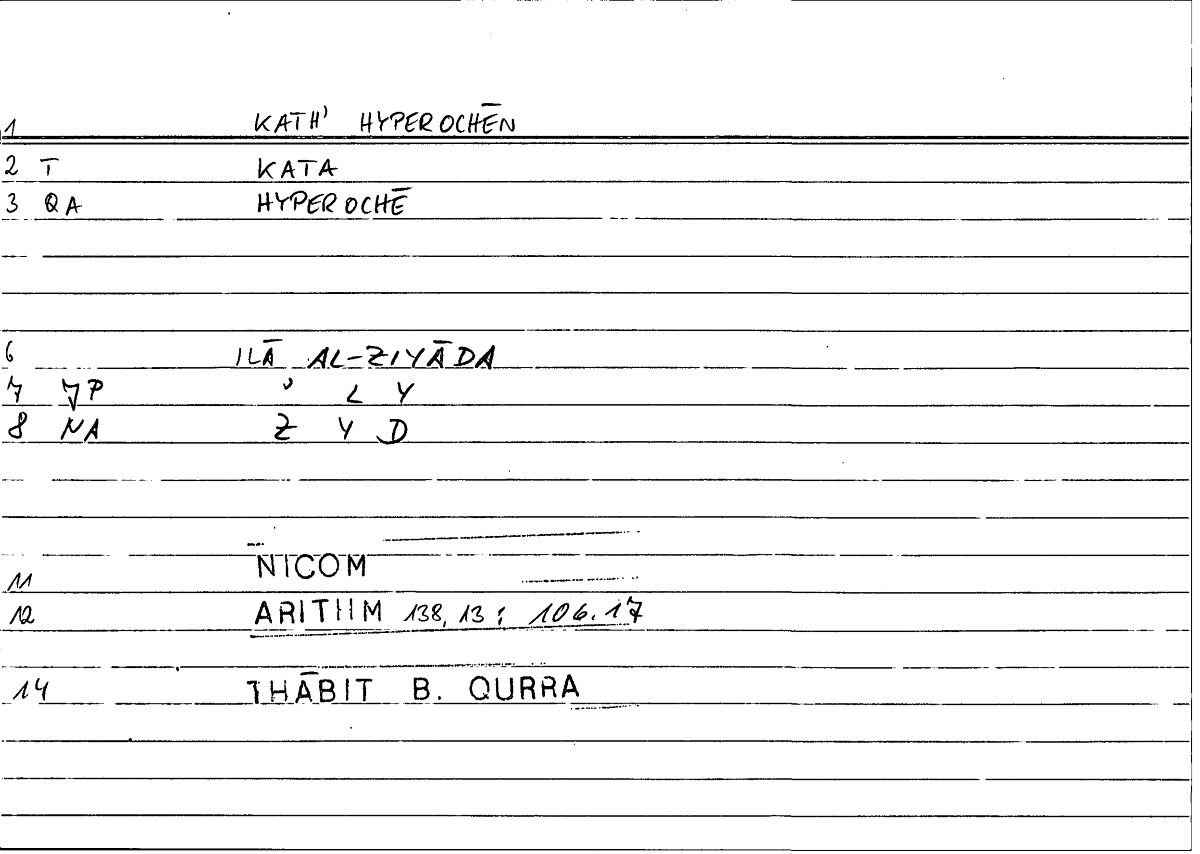 1 KATH' HYPEROCHĒN
2 T KATA
3 QA HYPEROCHĒ
6 ILĀ AL-ZIYĀDA
7 JP ' L Y
8 NA Z Y D
11 NICOM
12 ARITHM 138,13 : 106.17
14 THĀBIT B. QURRA